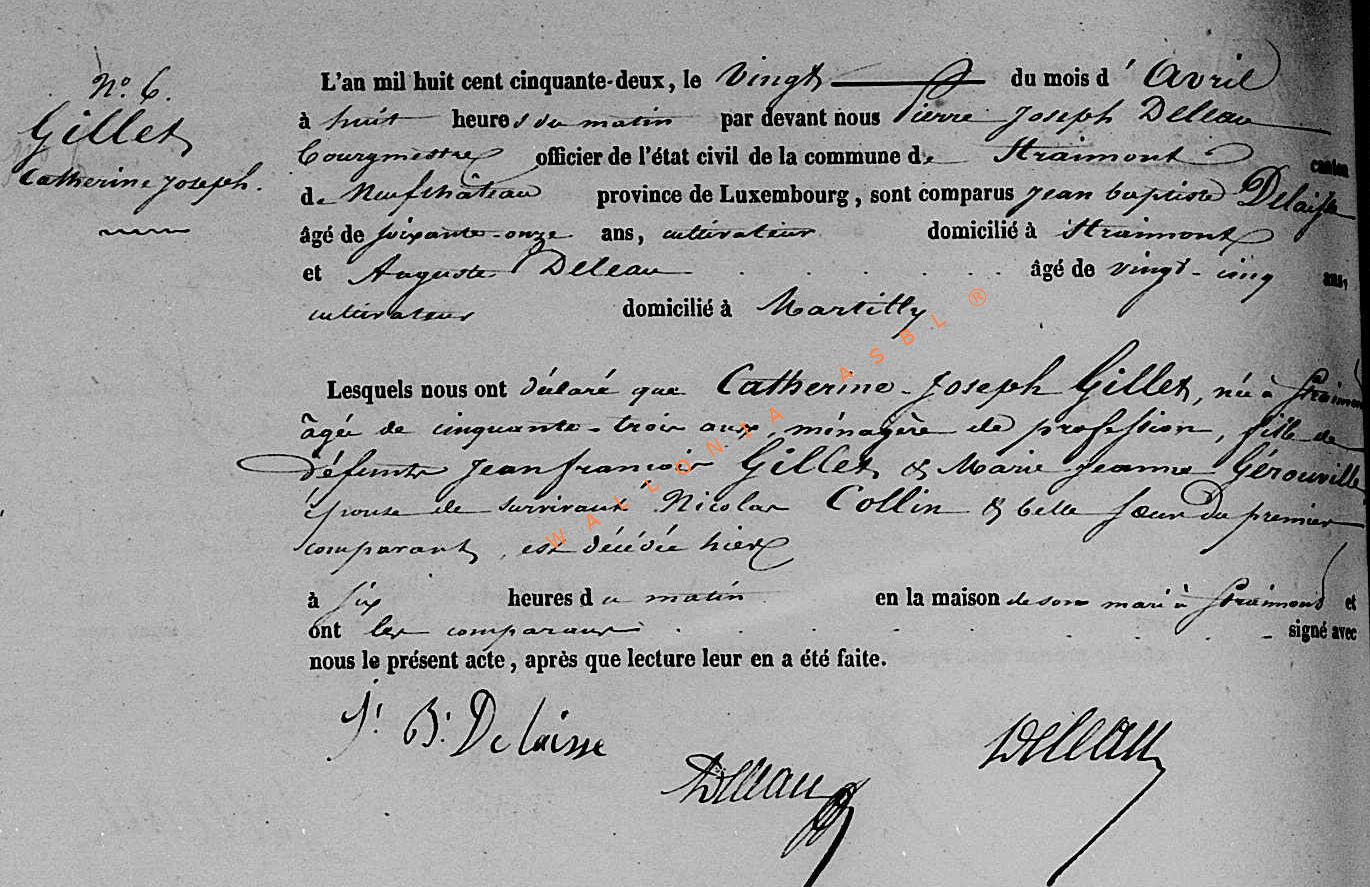 N.o 6.
Gillet
Catherine Joseph.
L'an mil huit cent cinquante-deux, le Vingt du mois d' Avril
à huit heures du matin par devant nous Pierre Joseph Deleau
Bourgmestre officier de l'état civil de la commune de Straimont canton
de Neufchâteau province de Luxembourg, sont comparus Jean baptiste Delaisse
âgé de soixante-onze ans, cultivateur domicilié à Straimont
et Auguste Deleau âgé de vingt-cinq ans,
cultivateur domicilié à Martilly
Lesquels nous ont déclaré que Catherine-Joseph Gillet, née à Straimont
âgée de cinquante-trois ans, ménagère de profession, fille de
défunts Jean françois Gillet & Marie Jeanne Gérouville
épouse de survivant Nicolas Collin & belle sœur du premier
comparant, est décédée hier
à six heures du matin en la maison de son mari à Straimont et
ont les comparans signé avec
nous le présent acte, après que lecture leur en a été faite.
J. B. Delaisse
Deleau
Deleau
WALLONIA ASBL ®